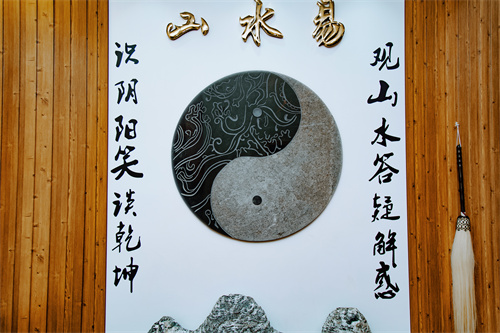 山水易
观山水答疑解惑
识阴阳笑谈乾坤